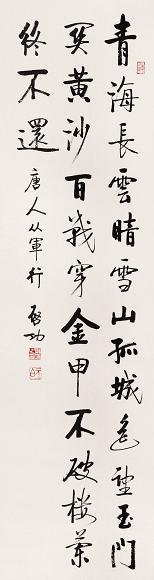 青海長雲暗雪山孤城遙望玉門
關黃沙百戰穿金甲不破樓蘭
終不還
唐人从軍行 啓功